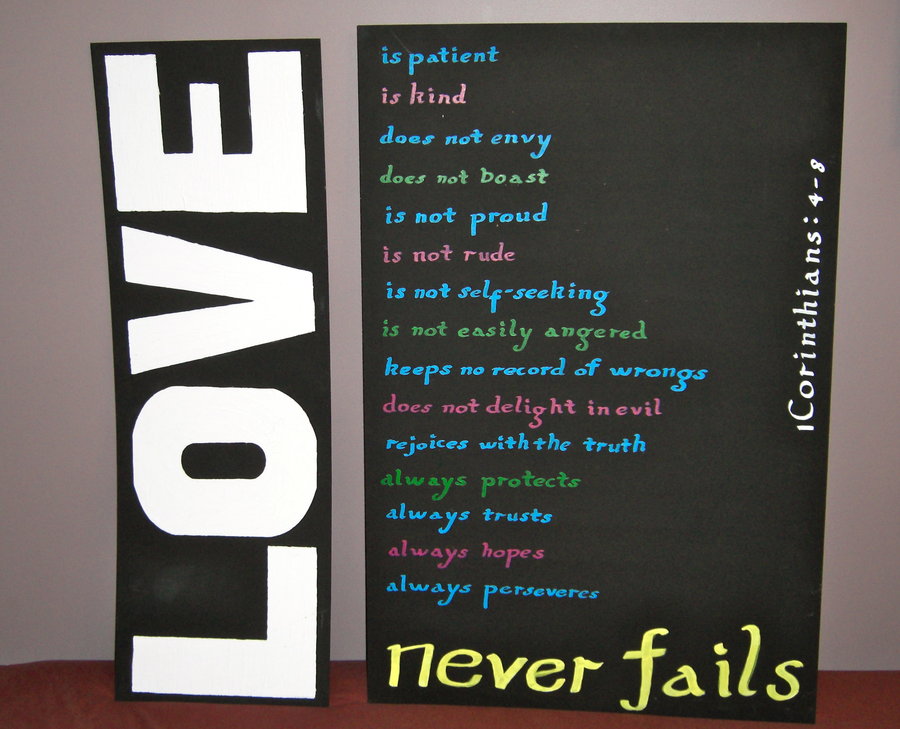 LOVE
is patient
is kind
does not envy
does not boast
is not proud
is not rude
is not self-seeking
is not easily angered
keeps no record of wrongs
does not delight in evil
rejoices with the truth
always protects
always trusts
always hopes
always perseveres
never fails
1Corinthians: 4-8